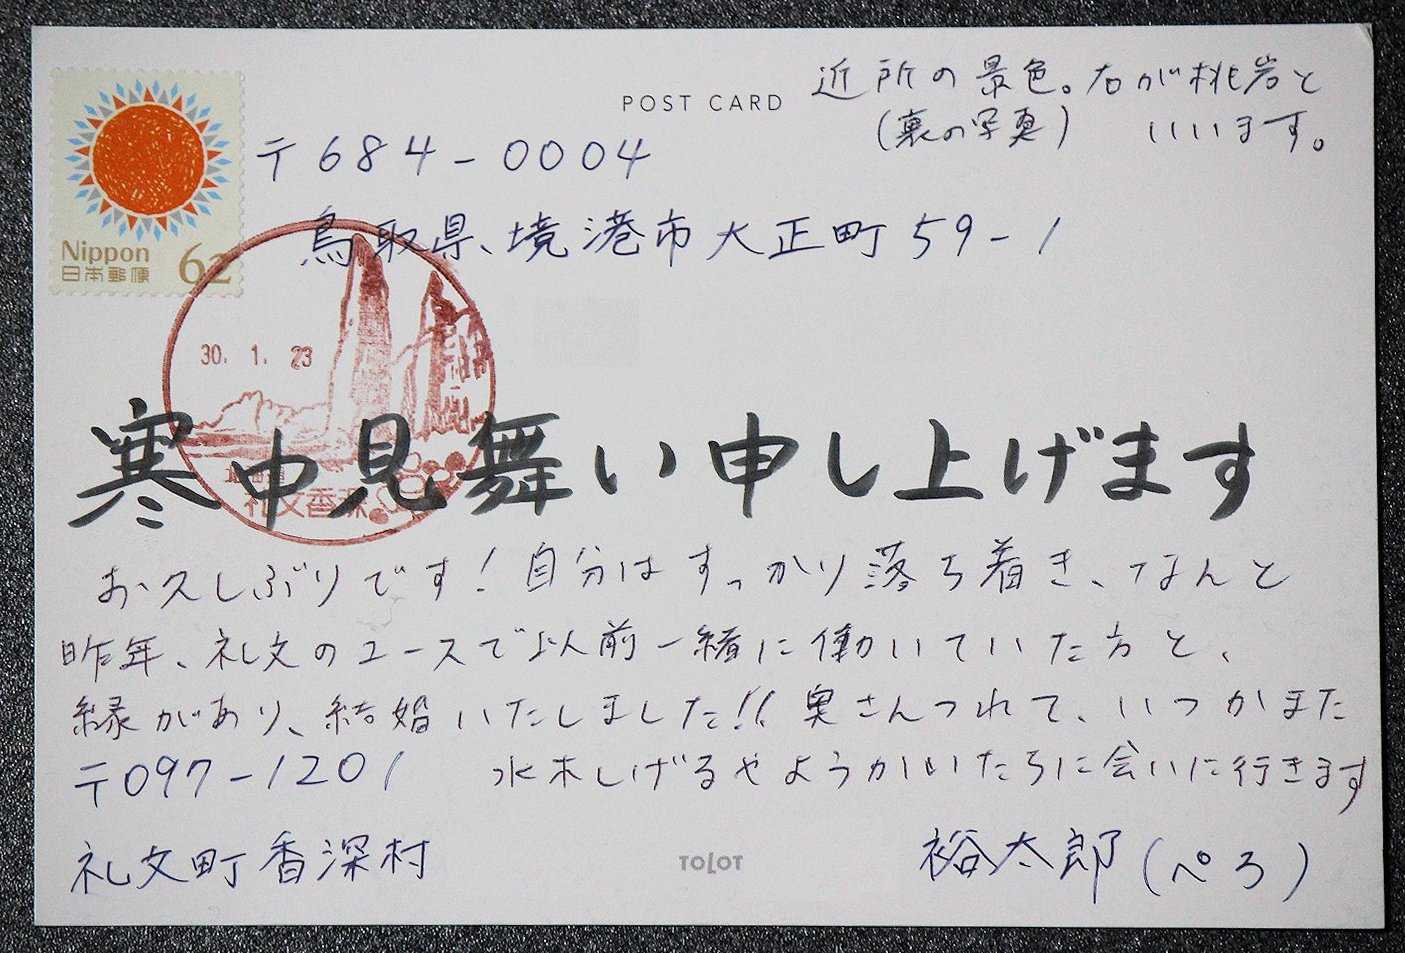 POST CARD
近所の景色。右が桃岩と
(裏の写真) いいます。
〒684-0004
鳥取県、境港市大正町59-1
Nippon
日本郵便 62
30. 1. 23
礼文香深
寒中見舞い申し上げます
お久しぶりです!自分はすっかり落ち着き、なんと
昨年、礼文のユースで以前一緒に働いていた方と、
縁があり、結婚いたしました!!奥さんつれて、いつかまた
〒097-1201 水木しげるやようかいたちに会いに行きます
礼文町香深村
TOLOT
裕太郎(ぺろ)